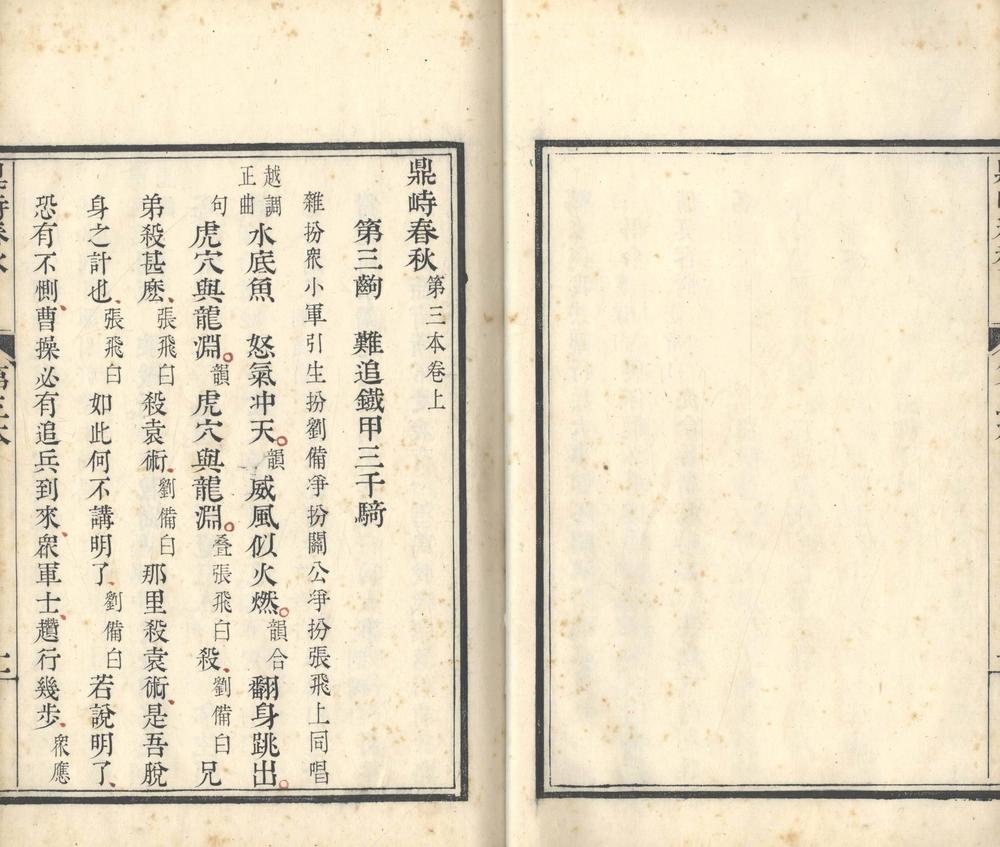 鼎峙春秋 第三本卷上
第三齣 難追鐵甲三千騎
雜扮衆小軍引生扮劉備淨扮關公淨扮張飛上同唱
越調正曲 水底魚 怒氣冲天。韻威風似火燃。韻合翻身跳出。
句虎穴與龍淵。韻虎穴與龍淵。叠張飛白殺、劉備白兄
弟殺甚麽、張飛白殺袁術、劉備白那里殺袁術、是吾脫
身之計也、張飛白如此何不講明了、劉備白若說明了、
恐有不惻、曹操必有追兵到來、衆軍士、趲行幾步、衆應
鼎峙春秋
第三本